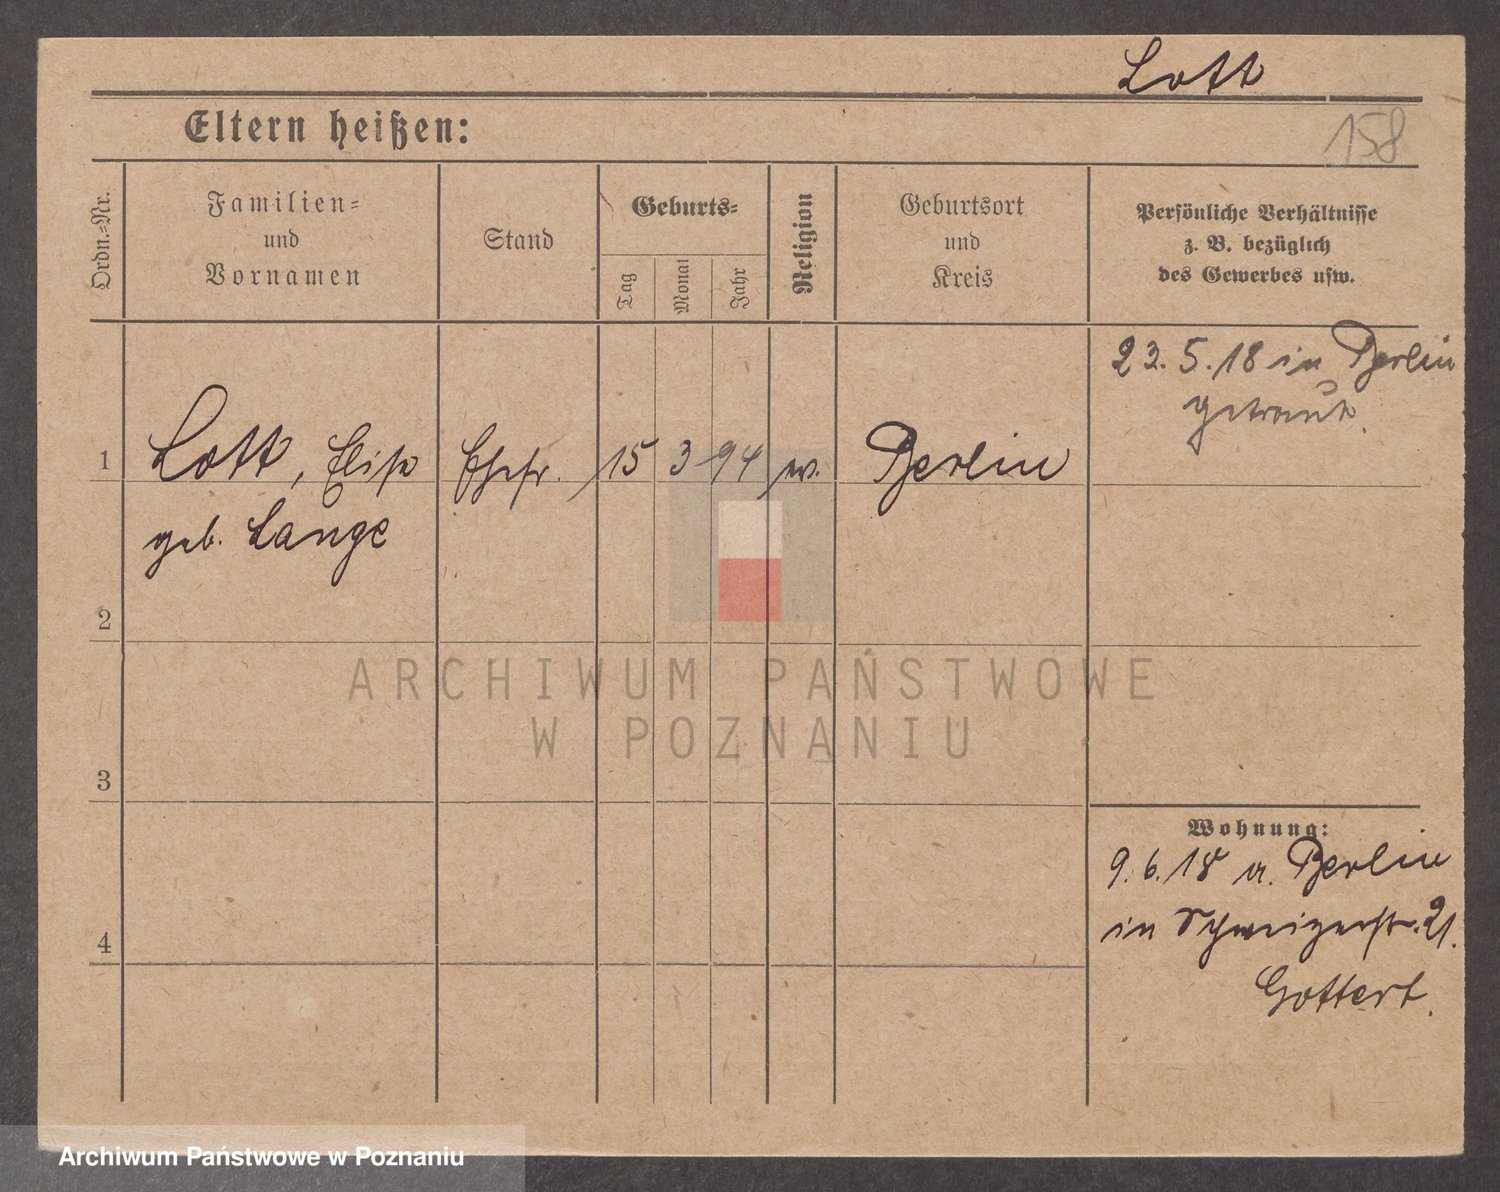 Lott
Eltern heißen:
158
Ordn.=Nr.
Familien=
und
Vornamen
Stand
Geburts=
Tag
Monat
Jahr
Religion
Geburtsort
und
Kreis
Persönliche Verhältnisse
z. B. bezüglich
des Gewerbes usw.
23. 5. 18 in Berlin
getraut.
1
Lott, Elise
Ehefr.
15
3
94
ev.
Berlin
geb. Lange
2
3
4
Wohnung:
9. 6. 18 n. Berlin
in Schweizerstr. 21.
Gottert.
ARCHIWUM PAŃSTWOWE
W POZNANIU
Archiwum Państwowe w Poznaniu